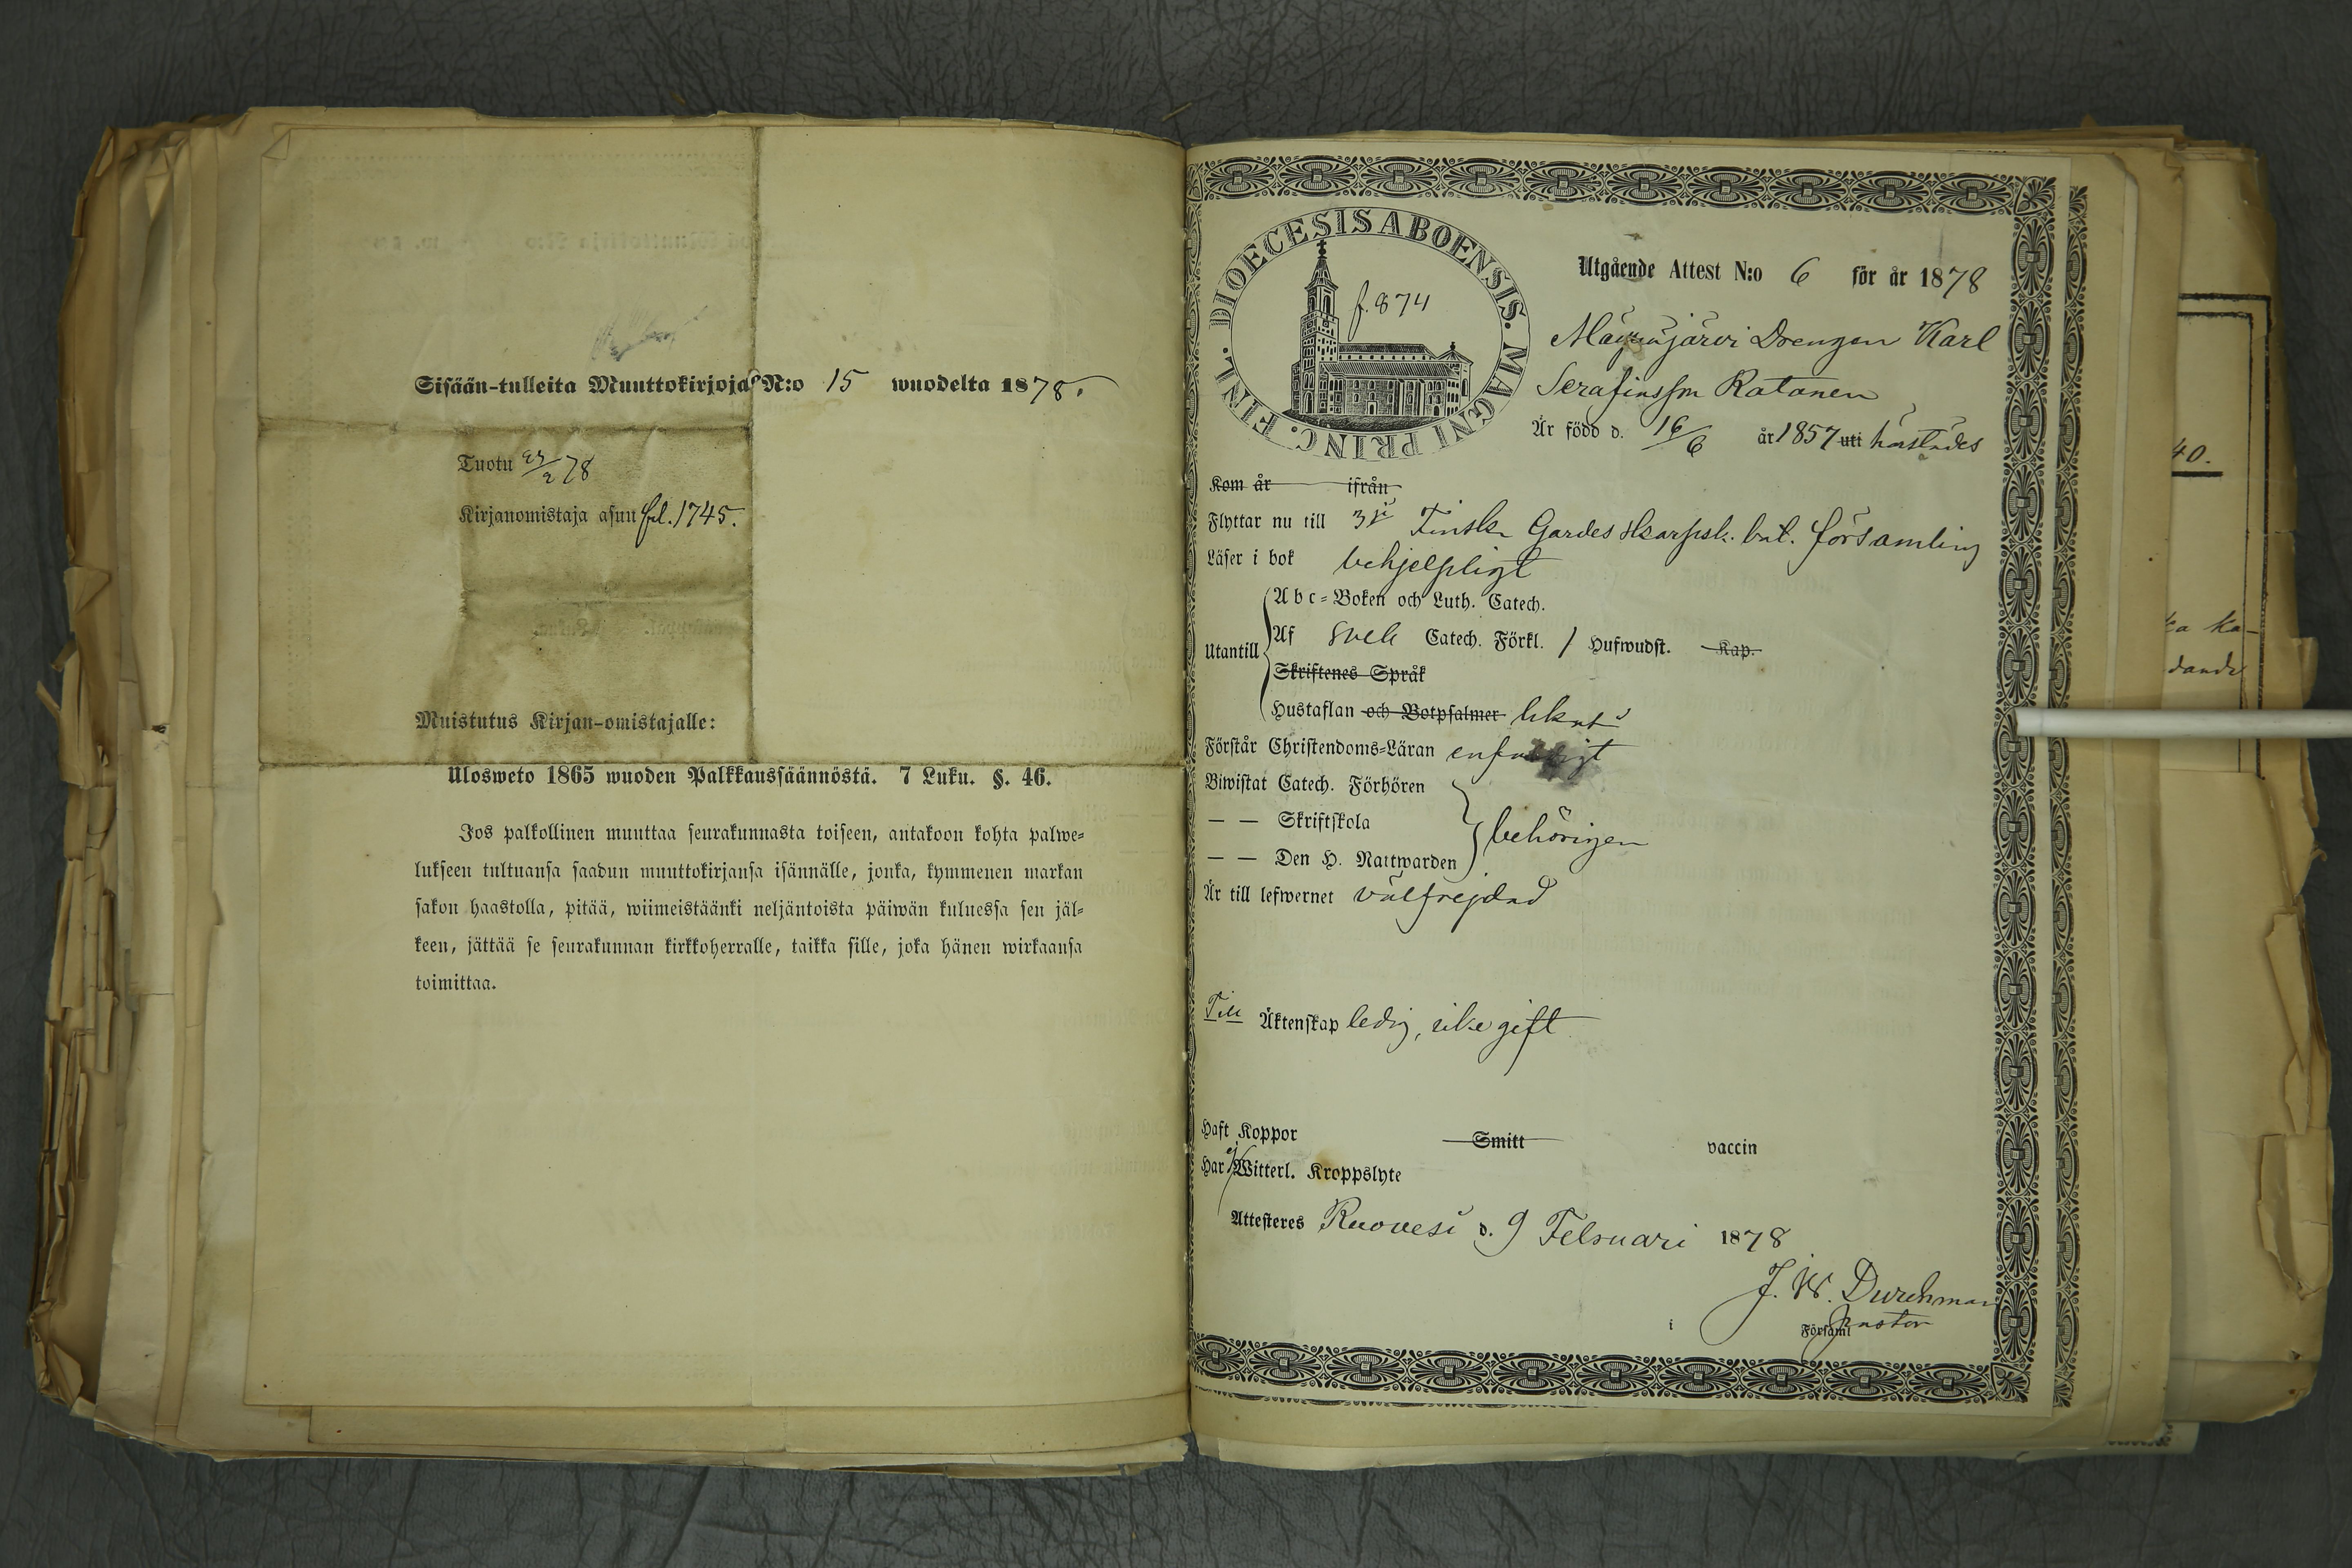 Sisään-tulleita Muuttokirjoja N:o 15 wuodelta 1878.
Tuotu 27/2 78
Kirjanomistaja asuu fol. 1745.
Muistutus Kirjan-omistajalle:
Ulosweto 1865 wuoden Palkkaussäännöstä. 7 Luku. §. 46.
Jos palkollinen muuttaa seurakunnasta toiseen, antakoon kohta palwe-
lukseen tultuansa saadun muuttokirjansa isännälle, jonka, kymmenen markan
sakon haastolla, pitää, wiimeistäänki neljäntoista päiwän kuluessa sen jäl-
keen, jättää se seurakunnan kirkkoherralle, taikka sille, joka hänen wirkaansa
toimittaa.
DIOECESIS ABOENSIS. MAGNI PRINC. FINL.
f. 874
Utgående Attest N:o 6 för år 1878
Drengen Karl
Serafinsson Ratanen
Är född d. 16/6 år 1857 uti härstädes
Kom år ifrån
Flyttar nu till Finska Gardes skarpsk. bat. församling
Läser i bok behjelpligt
Utantill
Abc-Boken och Luth. Catech.
Af Catech. Förkl. / Hufwudst. Kap.
Skriftenes Språk
Hustaflan och Botpsalmer
Förstår Christendoms-Läran enfaldigt
Biwistat Catech. Förhören
— — Skriftskola behörigen
— — Den H. Nattwarden
Är till lefwernet välfrejdad
Till Äktenskap ledig, icke gift
Haft Koppor Smitt vaccin
Har ej Witterl. Kroppslyte
Attesteres Ruovesi d. 9 Februari 1878
J. W. Durchman
i Församl
Pastor
40.